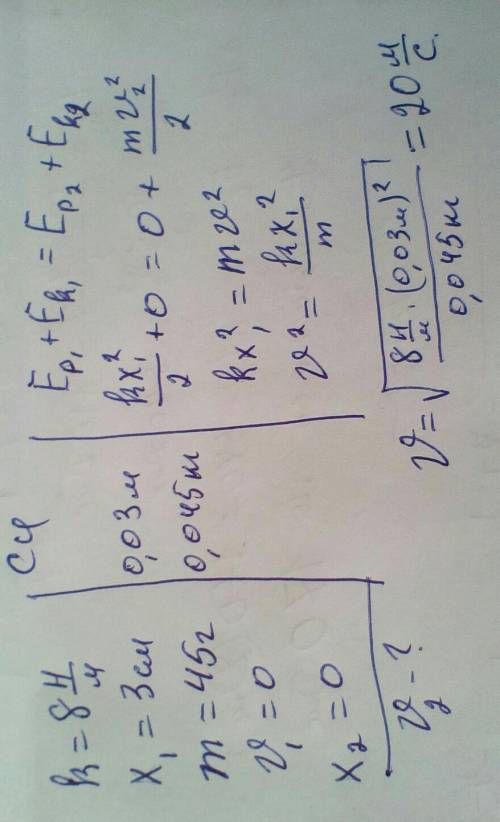 k = 8 Н/м
x₁ = 3 см
m = 45 г
v₁ = 0
x₂ = 0
v₂ - ?
СИ
0,03 м
0,045 кг
Eₚ₁ + Eₖ₁ = Eₚ₂ + Eₖ₂
kx₁²/2 + 0 = 0 + mv₂²/2
kx₁² = mv²
v² = kx₁²/m
v = √(8 Н/м · (0,03 м)²/0,045 кг) = 20 м/с.